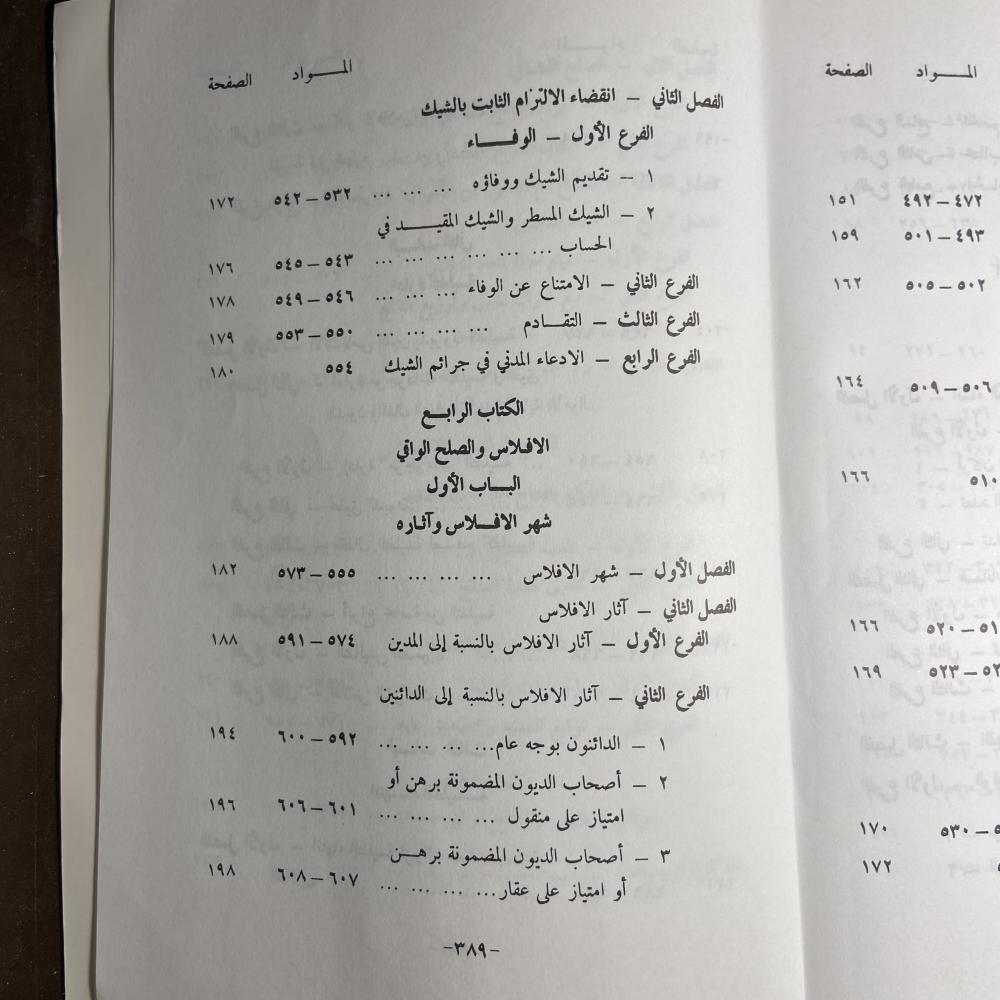 المـــواد الصفحة
الفصل الثاني – انقضاء الالتزام الثابت بالشيك
الفرع الأول – الوفـــاء
١ – تقديم الشيك ووفاؤه ... ... ... ٥٣٢–٥٤٢ ١٧٢
٢ – الشيك المسطر والشيك المقيـــد في
الحساب ... ... ... ... ... ... ٥٤٣–٥٤٥ ١٧٦
الفرع الثاني – الامتناع عن الوفاء ... ... ... ٥٤٦–٥٤٩ ١٧٨
الفرع الثالث – التقـــادم ... ... ... ... ٥٥٠–٥٥٣ ١٧٩
الفرع الرابع – الادعاء المدني في جرائم الشيك ٥٥٤ ١٨٠
الكتاب الرابـــع
الافلاس والصلح الواقي
البـــاب الأول
شهر الافـــلاس وآثاره
الفصل الأول – شهر الافلاس ... ... ... ... ٥٥٥–٥٧٣ ١٨٢
الفصل الثاني – آثار الافلاس
الفرع الأول – آثار الافلاس بالنسبة إلى المدين ٥٧٤–٥٩١ ١٨٨
الفرع الثاني – آثار الافلاس بالنسبة إلى الدائنين
١ – الدائنون بوجه عام... ... ... ... ٥٩٢–٦٠٠ ١٩٤
٢ – أصحاب الديون المضمونة برهن أو
امتياز على منقول ... ... ... ... ٦٠١–٦٠٦ ١٩٦
٣ – أصحاب الديون المضمونة برهـــن
أو امتياز على عقار... ... ... ... ٦٠٧–٦٠٨ ١٩٨
–٣٨٩–
المـــواد الصفحة
٤٧٢–٤٩٢ ١٥١
٤٩٣–٥٠١ ١٥٩
٥٠٢–٥٠٥ ١٦٢
٥٠٦–٥٠٩ ١٦٤
٥١٠ ١٦٦
–٥٢٠ ١٦٦
–٥٢٣ ١٦٩
–٥٣٠ ١٧٠
١٧٢